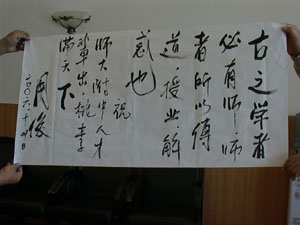 古之学者
必有师师
者所以传
道授业解
惑也
祝
师大附中人才
辈出桃李
满天下
周俊
二〇〇六·十·廿日